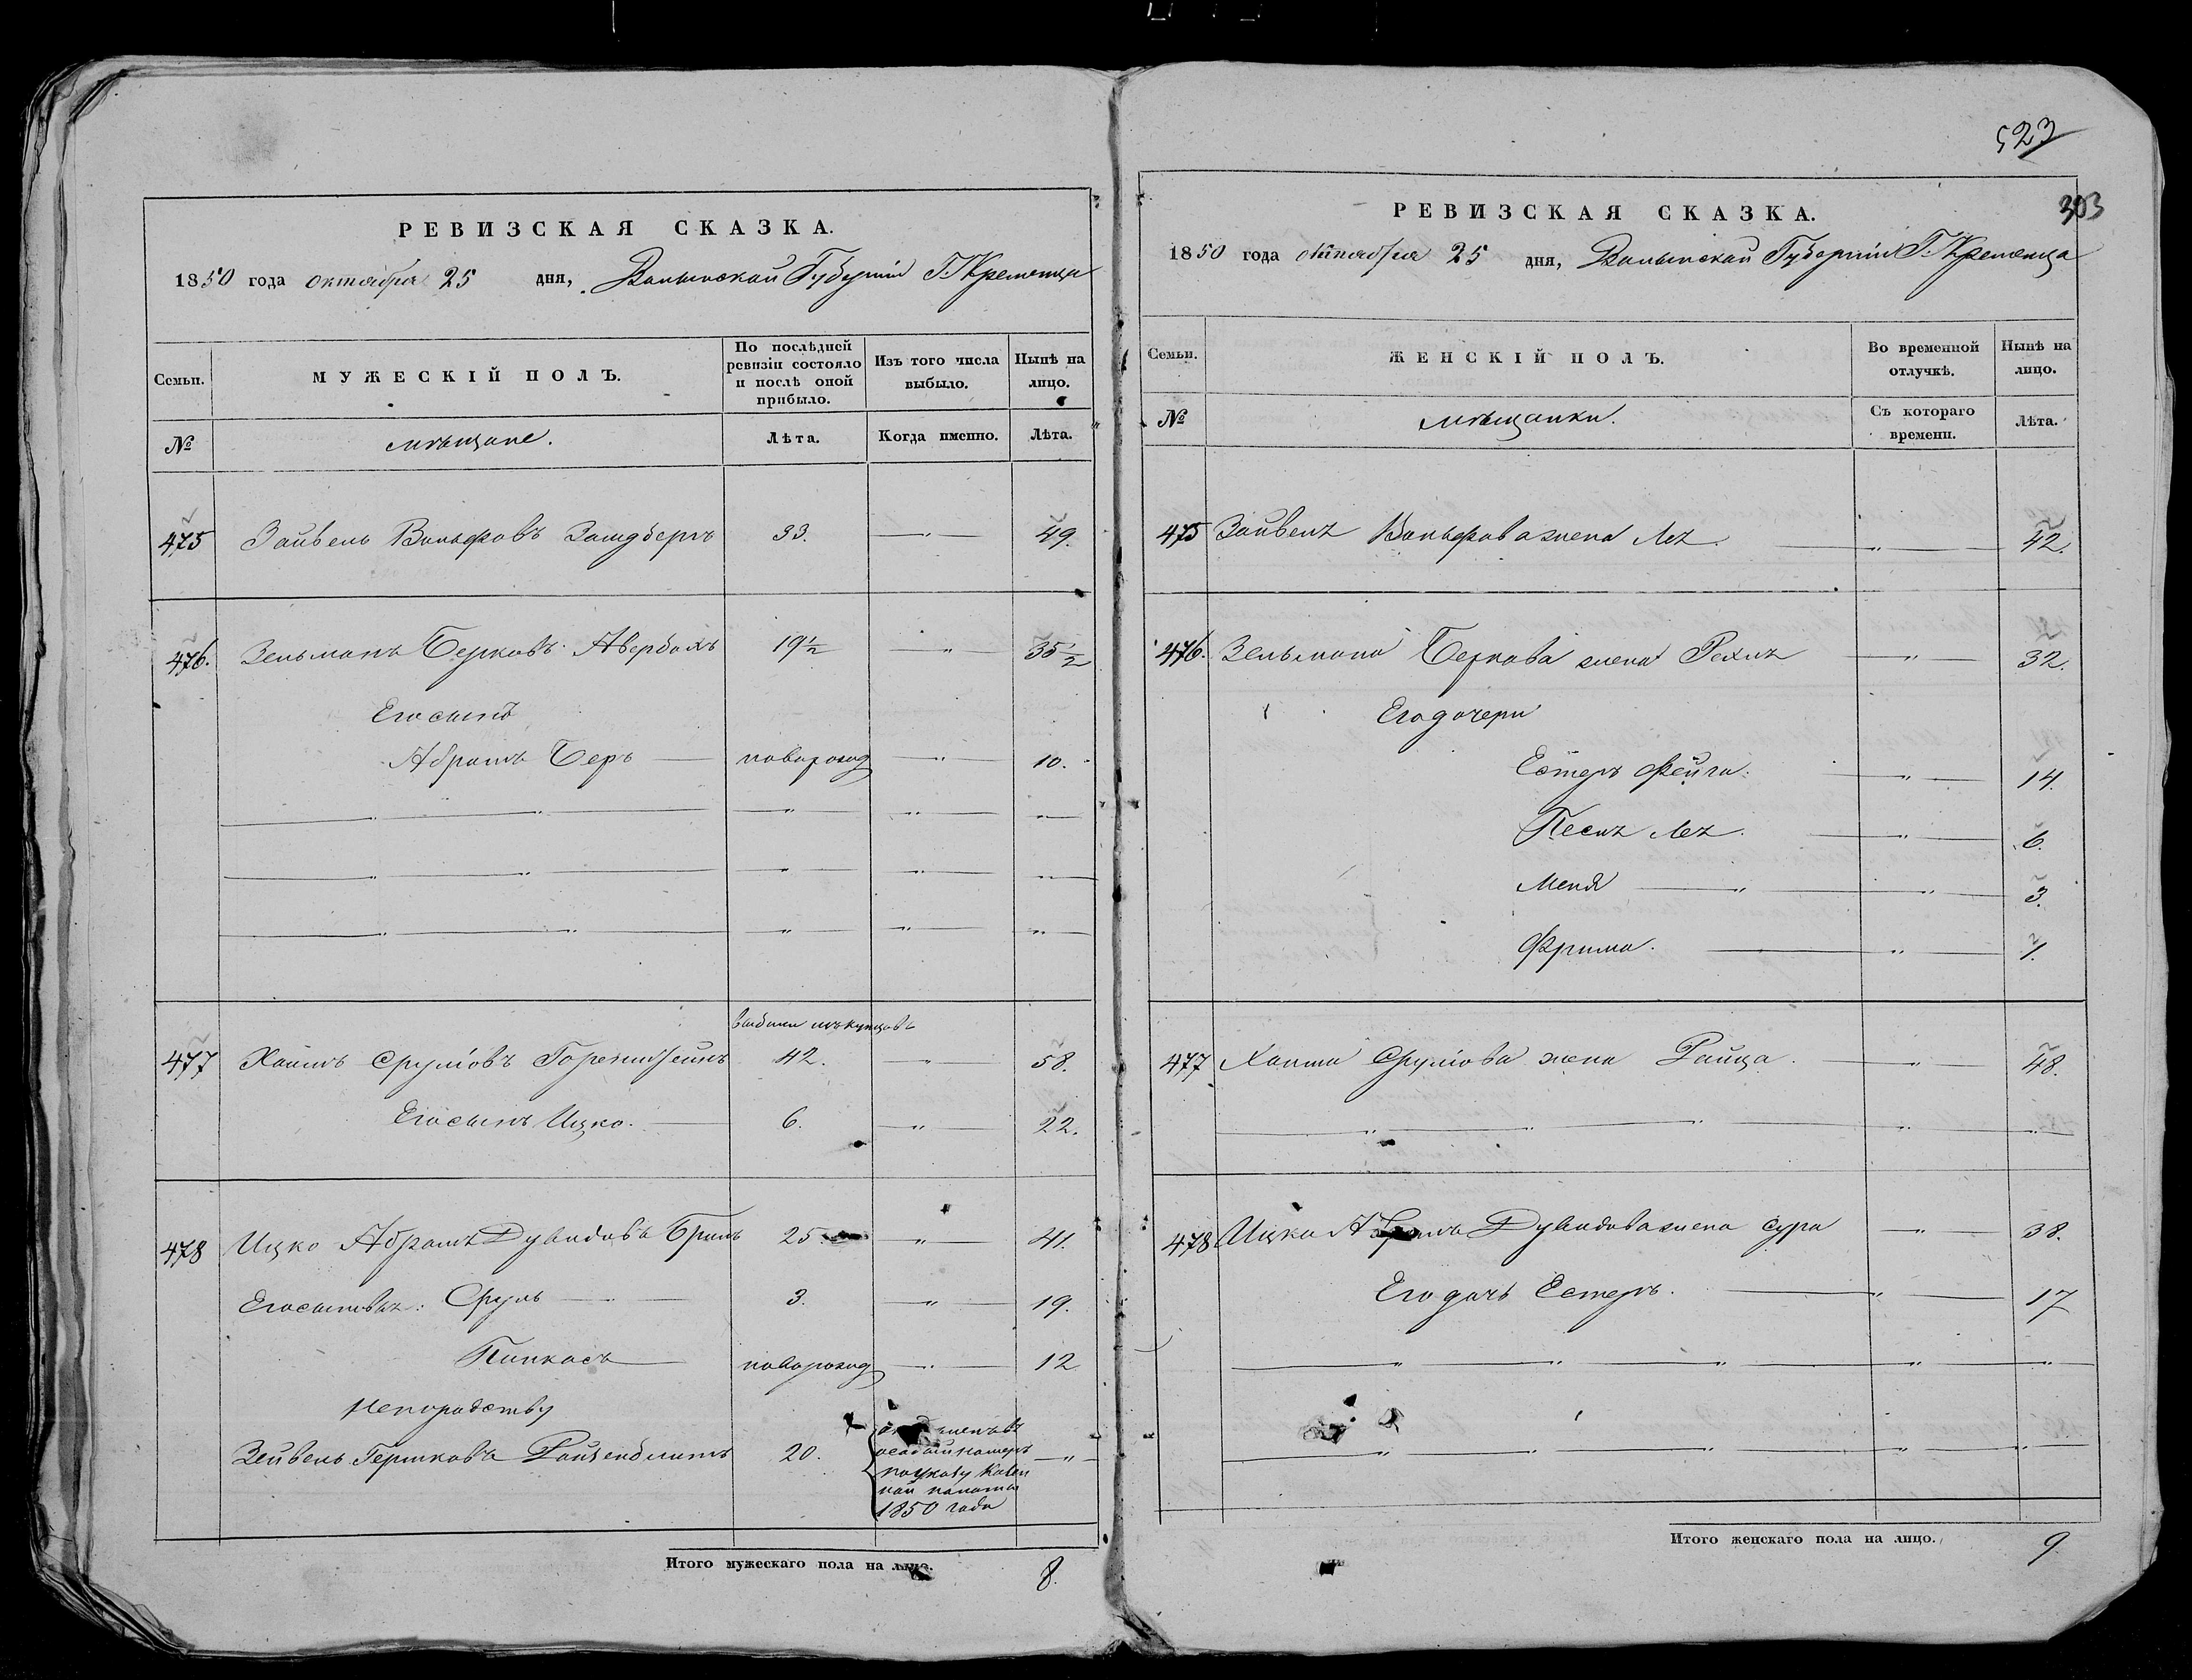 РЕВИЗСКАЯ СКАЗКА.
1850 года октября 25 дня, Волынской Губерніи Г. Кременца
Семьи. МУЖЕСКІЙ ПОЛЪ. По послѣдней ревизіи состояло и послѣ оной прибыло. Изъ того числа выбыло. Нынѣ на лицо.
№ мѣщане. Лѣта. Когда именно. Лѣта.
475 Зайвель Вольфовъ Зандберъ 33. — 49.
476. Зельманъ Берковъ Авербахъ 19½ " 35½
Его сынъ
Абрамъ Беръ — новорожд — 10.
477 Хаимъ Сруліовъ 42. — 58.
Его сынъ Ицко. — 6. " 22.
478 Ицко Абрамъ Дувидовъ Бриль 25 " 41.
Его сыновья: Сруль — 3. " 19.
Пинкасъ — новорожд — 12
Непородству
Зейвель Гершковъ 20. — " —
особый номеръ
по указу Казен
ной палаты
1850 года
Итого мужескаго пола на лицо. 8.
523
303
РЕВИЗСКАЯ СКАЗКА.
1850 года октября 25 дня, Волынской Губерніи Г. Кременца
Семьи. ЖЕНСКІЙ ПОЛЪ. Во временной отлучкѣ. Нынѣ на лицо.
№ мѣщанки. Съ котораго времени. Лѣта.
475 Зайвеля Вольфова жена Лея — " — 42.
476. Зельмана Беркова жена Рехля — " — 32.
Его дочери
Естеръ Фейга. — " — 14.
Песя Лея. — " — 6.
Меня — " — 3.
Фрима. — " — 1.
477 Хаима Сруліова жена Райца. — " — 48.
478 Ицка Абрамъ Дувидова жена Сура — " — 38.
Его дочь Естеръ. — " — 17
Итого женскаго пола на лицо. 9